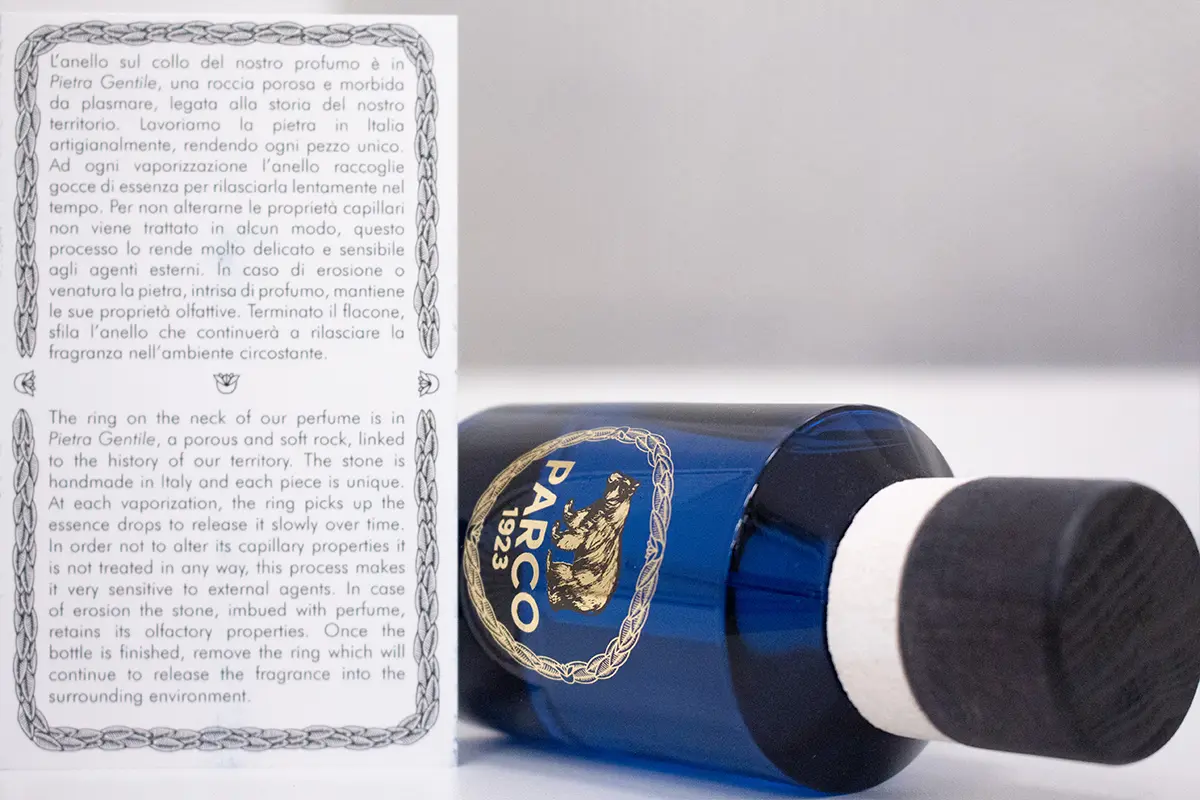 L'anello sul collo del nostro profumo è in
Pietra Gentile, una roccia porosa e morbida
da plasmare, legata alla storia del nostro
territorio. Lavoriamo la pietra in Italia
artigianalmente, rendendo ogni pezzo unico.
Ad ogni vaporizzazione l'anello raccoglie
gocce di essenza per rilasciarla lentamente nel
tempo. Per non alterarne le proprietà capillari
non viene trattato in alcun modo, questo
processo lo rende molto delicato e sensibile
agli agenti esterni. In caso di erosione o
venatura la pietra, intrisa di profumo, mantiene
le sue proprietà olfattive. Terminato il flacone,
sfila l'anello che continuerà a rilasciare la
fragranza nell'ambiente circostante.
The ring on the neck of our perfume is in
Pietra Gentile, a porous and soft rock, linked
to the history of our territory. The stone is
handmade in Italy and each piece is unique.
At each vaporization, the ring picks up the
essence drops to release it slowly over time.
In order not to alter its capillary properties it
is not treated in any way, this process makes
it very sensitive to external agents. In case
of erosion the stone, imbued with perfume,
retains its olfactory properties. Once the
bottle is finished, remove the ring which will
continue to release the fragrance into the
surrounding environment.
PARCO
1923